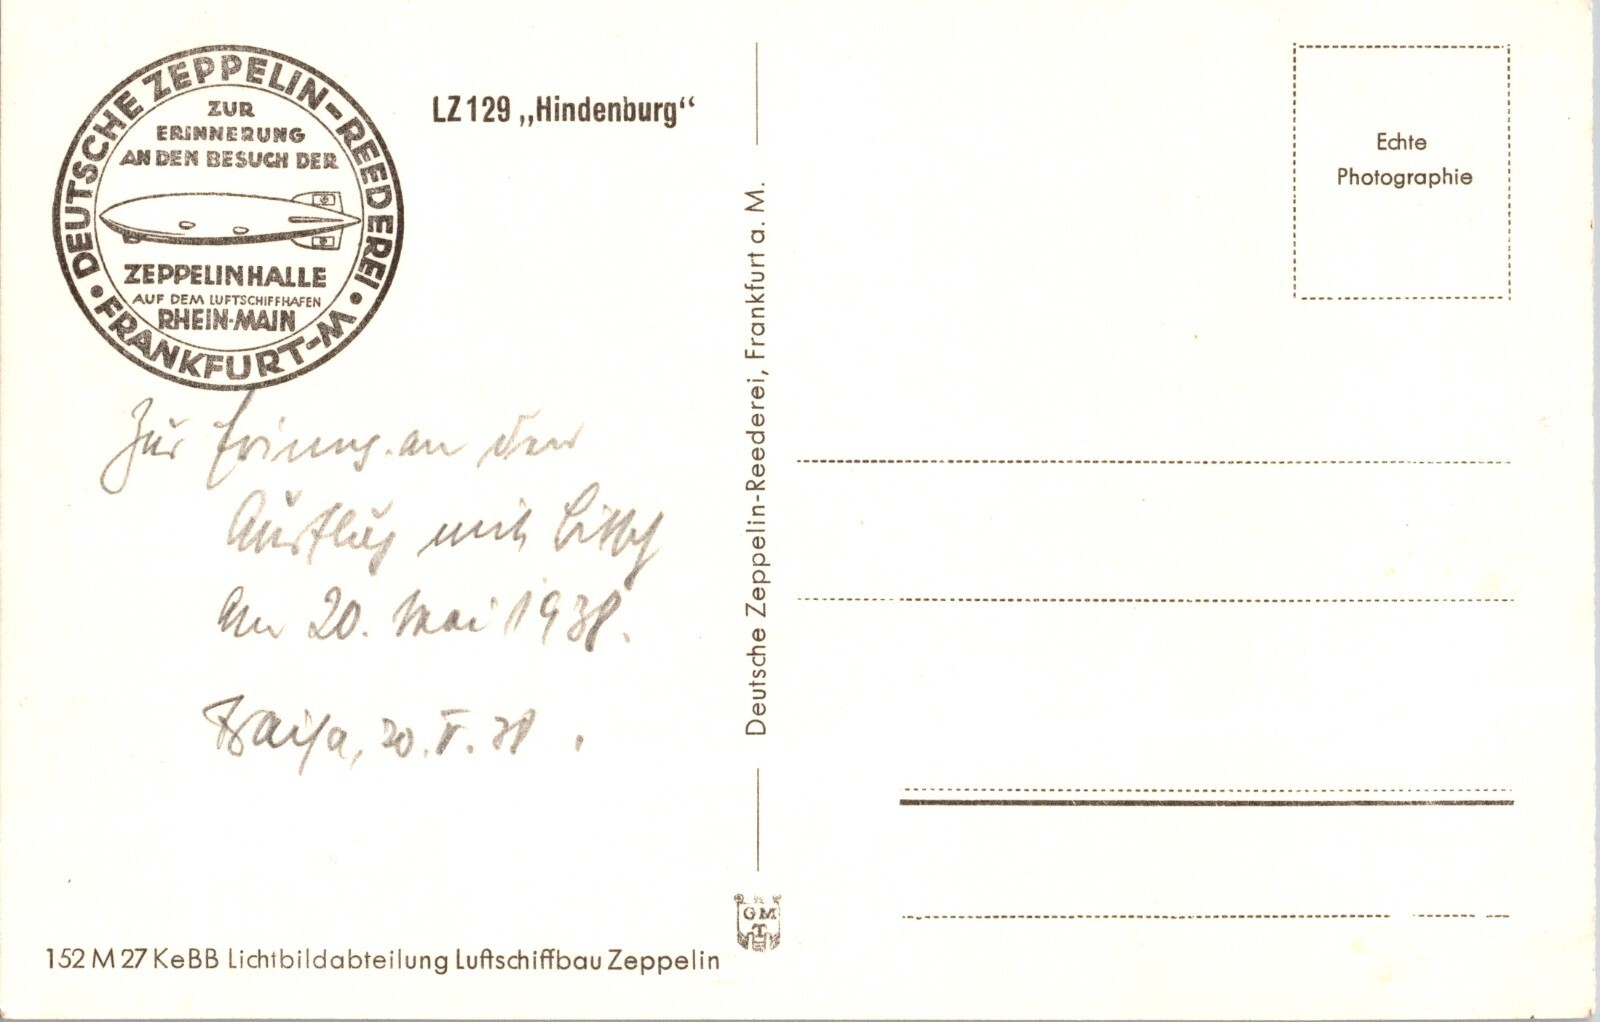 DEUTSCHE ZEPPELIN-REEDEREI
• FRANKFURT-M •
ZUR
ERINNERUNG
AN DEN BESUCH DER
ZEPPELINHALLE
AUF DEM LUFTSCHIFFHAFEN
RHEIN-MAIN
LZ 129 „Hindenburg“
Zur Erinng. an den
Ausflug mit
am 20. Mai 1938.
20. V. 38.
Deutsche Zeppelin-Reederei, Frankfurt a. M.
GM
T
152 M 27 KeBB Lichtbildabteilung Luftschiffbau Zeppelin
Echte
Photographie